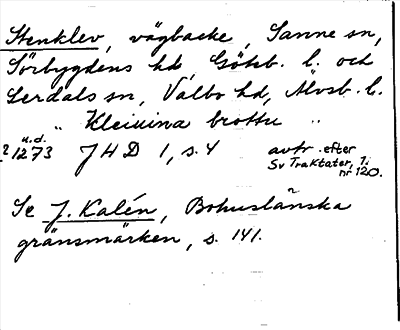 Stenklev, vägbacke, Sanne sn,
Sörbygdens hd Göteb. l. och
Lerdals sn, Valbo hd, Älvsb. l.
" Kleiuina brottu "
u.d.
? 1273 JHD 1, s. 4 avtr. efter
Sv Traktater, 1:
nr 120.
Se J. Kalén, Bohuslänska
gränsmärken, s. 141.